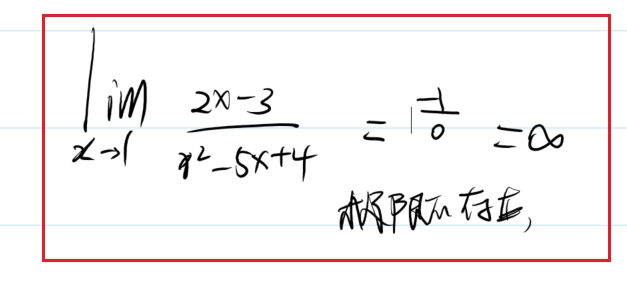 lim x→1 (2x-3)/(x²-5x+4) = -1/0 = ∞
极限不存在,